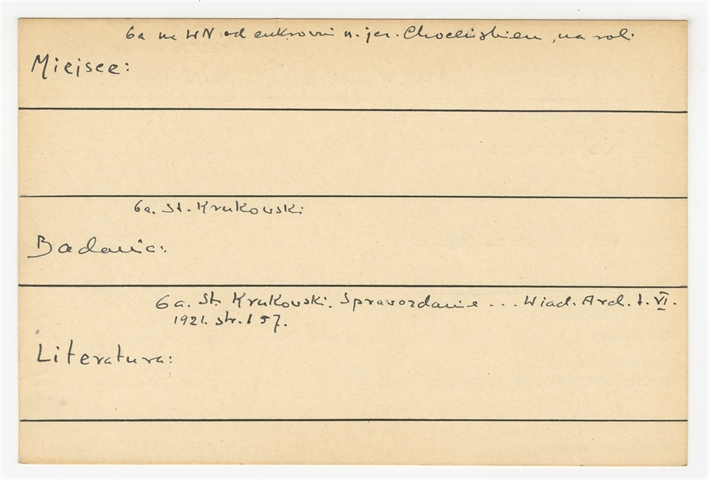 6a na WN od cukrowni n. jez. Choceńskiem, na roli
Miejsce:
6a. St. Krukowski
Badania:
6a. St. Krukowski. Sprawozdanie ... Wiad. Arch. t. VI.
1921. str. 157.
Literatura: